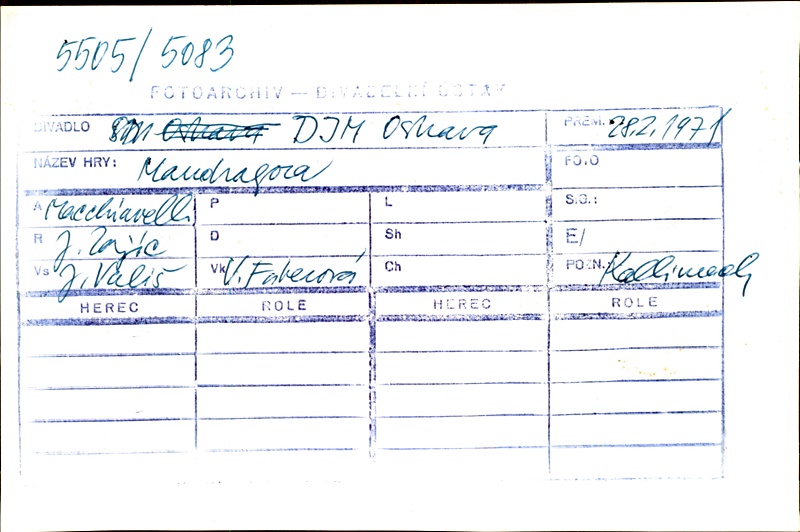 5505/5083
FOTOARCHIV — DIVADELNÍ ÚSTAV
DIVADLO Ostrava DJM Ostrava PREM. 28.2.1971
NÁZEV HRY: Mandragora FOTO
A Macchiavelli P L S.G.:
R J. Zajíc D Sh E/
Vs J. Vališ Vk V. Faberová Ch POZN. Kallimach
HEREC ROLE HEREC ROLE